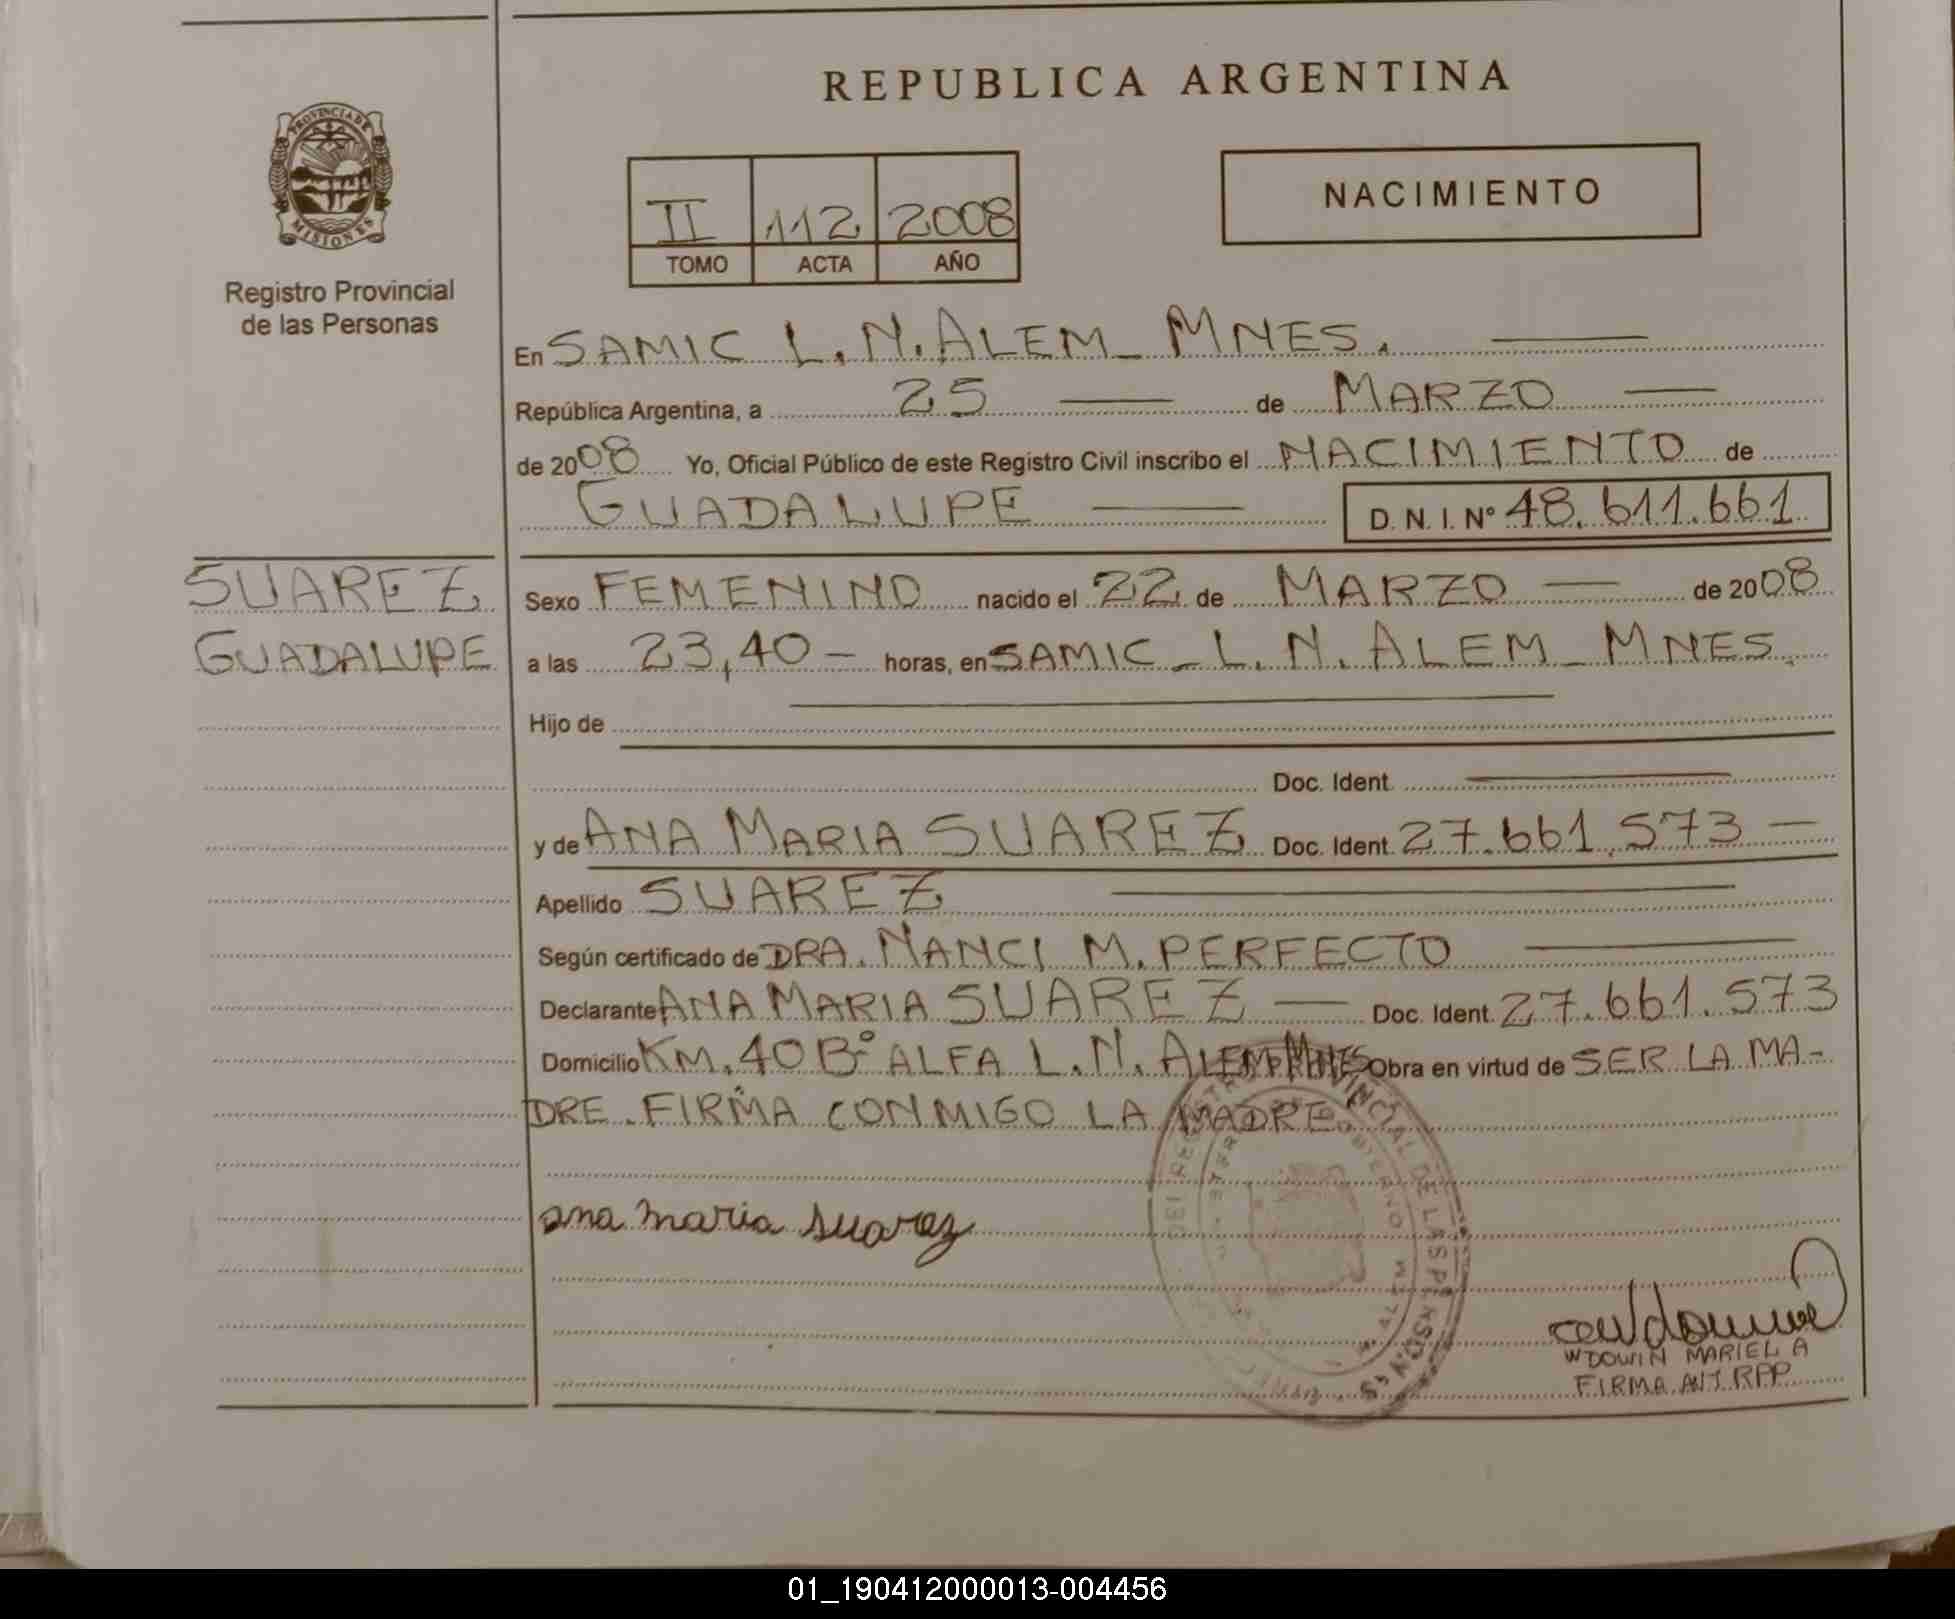 REPUBLICA ARGENTINA
PROVINCIA DE MISIONES
Registro Provincial
de las Personas
NACIMIENTO
II 112 2008
TOMO ACTA AÑO
En SAMIC L.N. ALEM_ MNES.
República Argentina, a 25 de MARZO
de 2008 Yo, Oficial Público de este Registro Civil inscribo el NACIMIENTO de
GUADALUPE D. N. I. Nº 48.611.661
SUAREZ
GUADALUPE
Sexo FEMENINO nacido el 22 de MARZO de 2008
a las 23,40 - horas, en SAMIC _ L.N. ALEM _ MNES.
Hijo de
Doc. Ident.
y de ANA MARIA SUAREZ Doc. Ident. 27.661.573 -
Apellido SUAREZ
Según certificado de DRA. NANCI M. PERFECTO
Declarante ANA MARIA SUAREZ Doc. Ident. 27.661.573
Domicilio KM. 40 Bº ALFA L.N. ALEM MNES Obra en virtud de SER LA MA-
DRE. FIRMA CONMIGO LA MADRE.
ana maria suarez
WDOWIN MARIEL A
FIRMA AUT RPP
01_190412000013-004456